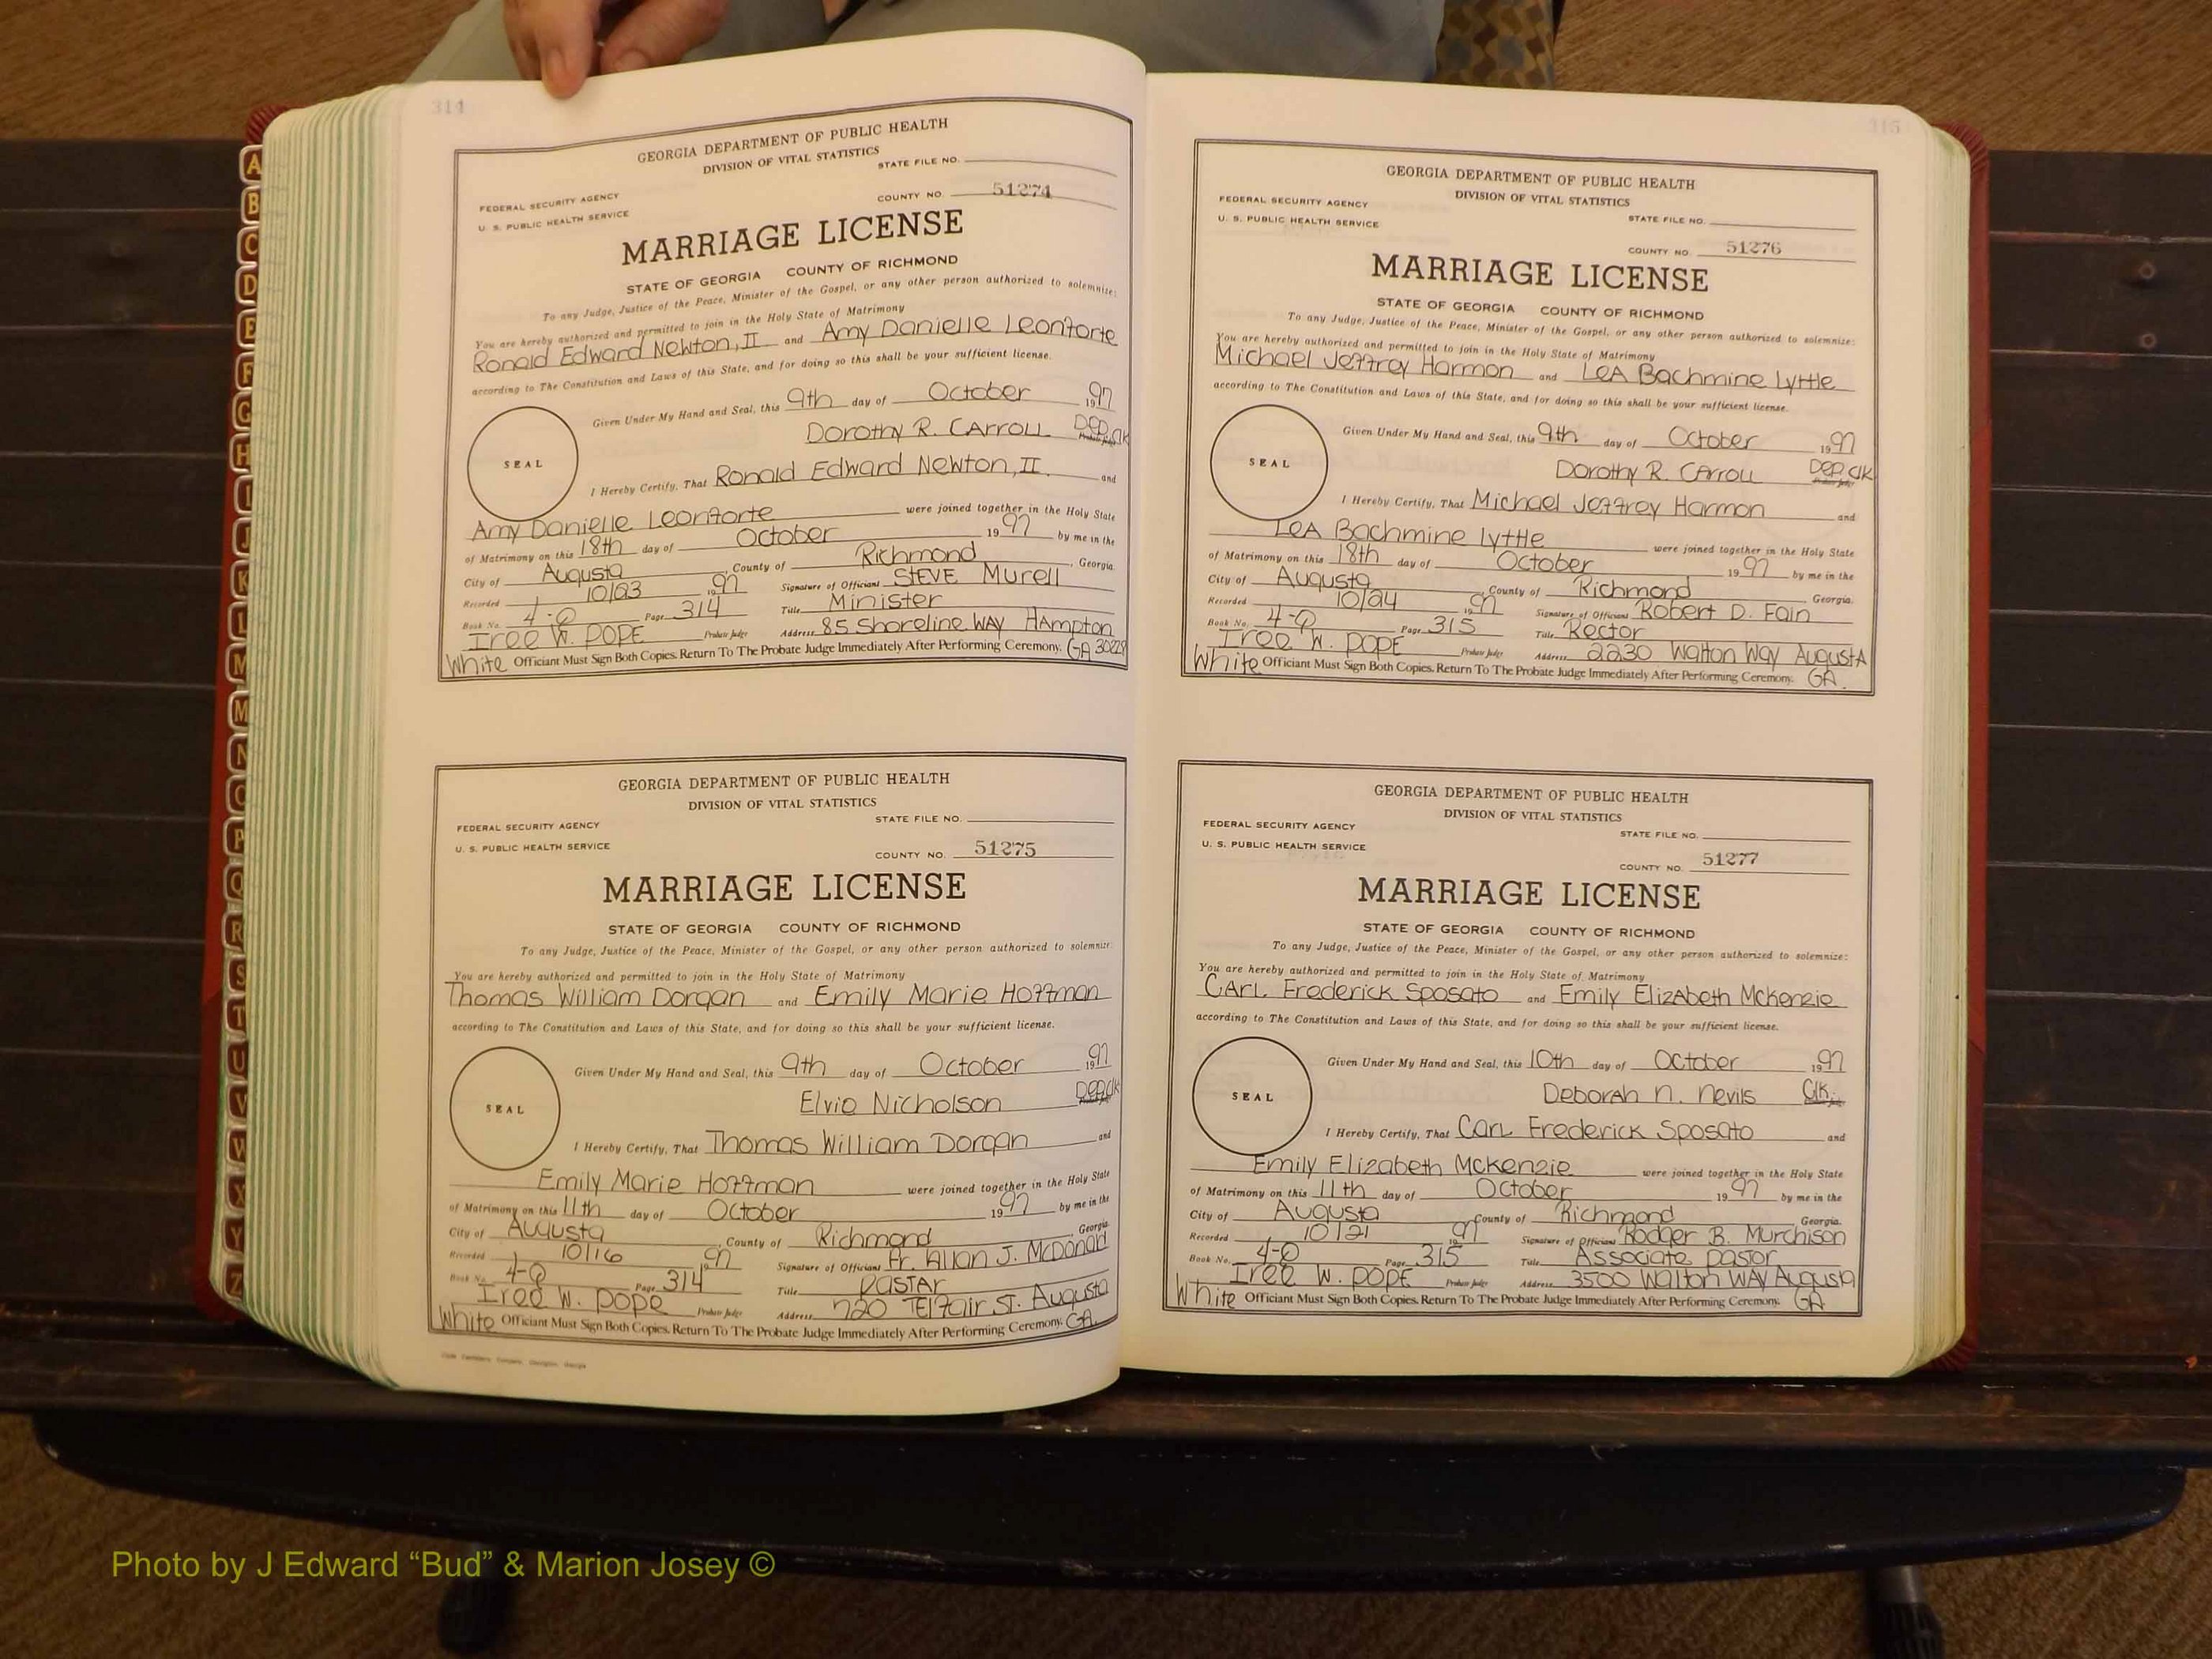 314
GEORGIA DEPARTMENT OF PUBLIC HEALTH
DIVISION OF VITAL STATISTICS
STATE FILE NO.
FEDERAL SECURITY AGENCY
U. S. PUBLIC HEALTH SERVICE
COUNTY NO. 51274
MARRIAGE LICENSE
STATE OF GEORGIA COUNTY OF RICHMOND
To any Judge, Justice of the Peace, Minister of the Gospel, or any other person authorized to solemnize:
You are hereby authorized and permitted to join in the Holy State of Matrimony
Ronald Edward Newton, II and Amy Danielle Leonforte
according to The Constitution and Laws of this State, and for doing so this shall be your sufficient license.
Given Under My Hand and Seal, this 9th day of October 1997
Dorothy R. Carroll Dep. Clk
SEAL
I Hereby Certify, That Ronald Edward Newton, II and
Amy Danielle Leonforte were joined together in the Holy State
of Matrimony on this 18th day of October 1997 by me in the
City of Augusta, County of Richmond, Georgia.
Recorded 10/23 1997 Signature of Officiant Steve Murell
Book No. 4-Q Page 314 Title Minister
Iree W. Pope Probate Judge Address 85 Shoreline Way Hampton
White Officiant Must Sign Both Copies. Return To The Probate Judge Immediately After Performing Ceremony. GA 30228
GEORGIA DEPARTMENT OF PUBLIC HEALTH
DIVISION OF VITAL STATISTICS
STATE FILE NO.
FEDERAL SECURITY AGENCY
U. S. PUBLIC HEALTH SERVICE
COUNTY NO. 51275
MARRIAGE LICENSE
STATE OF GEORGIA COUNTY OF RICHMOND
To any Judge, Justice of the Peace, Minister of the Gospel, or any other person authorized to solemnize:
You are hereby authorized and permitted to join in the Holy State of Matrimony
Thomas William Dorgan and Emily Marie Hoffman
according to The Constitution and Laws of this State, and for doing so this shall be your sufficient license.
Given Under My Hand and Seal, this 9th day of October 1997
Elvie Nicholson Dep. Clk
SEAL
I Hereby Certify, That Thomas William Dorgan and
Emily Marie Hoffman were joined together in the Holy State
of Matrimony on this 11th day of October 1997 by me in the
City of Augusta, County of Richmond Georgia.
Recorded 10/16 1997 Signature of Officiant Fr. Allan J. McDonald
Book No. 4-Q Page 314 Title Pastar
Iree W. Pope Probate Judge Address 720 Telfair St. Augusta
White Officiant Must Sign Both Copies. Return To The Probate Judge Immediately After Performing Ceremony. GA.
315
GEORGIA DEPARTMENT OF PUBLIC HEALTH
DIVISION OF VITAL STATISTICS
FEDERAL SECURITY AGENCY
U. S. PUBLIC HEALTH SERVICE
STATE FILE NO.
COUNTY NO. 51276
MARRIAGE LICENSE
STATE OF GEORGIA COUNTY OF RICHMOND
To any Judge, Justice of the Peace, Minister of the Gospel, or any other person authorized to solemnize:
You are hereby authorized and permitted to join in the Holy State of Matrimony
Michael Jeffrey Harmon and LeA Bachmine Lyttle
according to The Constitution and Laws of this State, and for doing so this shall be your sufficient license.
Given Under My Hand and Seal, this 9th day of October 1997
Dorothy R. Carroll Dep. Clk
SEAL
I Hereby Certify, That Michael Jeffrey Harmon and
LeA Bachmine Lyttle were joined together in the Holy State
of Matrimony on this 18th day of October 1997 by me in the
City of Augusta, County of Richmond Georgia.
Recorded 10/24 1997 Signature of Officiant Robert D. Fain
Book No. 4-Q Page 315 Title Rector
Iree W. Pope Probate Judge Address 2230 Walton Way Augusta
White Officiant Must Sign Both Copies. Return To The Probate Judge Immediately After Performing Ceremony. GA.
GEORGIA DEPARTMENT OF PUBLIC HEALTH
DIVISION OF VITAL STATISTICS
FEDERAL SECURITY AGENCY
U. S. PUBLIC HEALTH SERVICE
STATE FILE NO.
COUNTY NO. 51277
MARRIAGE LICENSE
STATE OF GEORGIA COUNTY OF RICHMOND
To any Judge, Justice of the Peace, Minister of the Gospel, or any other person authorized to solemnize:
You are hereby authorized and permitted to join in the Holy State of Matrimony
Carl Frederick Sposato and Emily Elizabeth McKenzie
according to The Constitution and Laws of this State, and for doing so this shall be your sufficient license.
Given Under My Hand and Seal, this 10th day of October 1997
Deborah N. Nevils Clk.
SEAL
I Hereby Certify, That Carl Frederick Sposato and
Emily Elizabeth McKenzie were joined together in the Holy State
of Matrimony on this 11th day of October 1997 by me in the
City of Augusta County of Richmond Georgia.
Recorded 10/21 1997 Signature of Officiant Rodger B. Murchison
Book No. 4-Q Page 315 Title Associate Pastor
Iree W. Pope Probate Judge Address 3500 Walton Way Augusta
White Officiant Must Sign Both Copies. Return To The Probate Judge Immediately After Performing Ceremony. GA
A
B
C
D
E
F
G
H
I
J
K
L
M
M
N
O
P
Q
R
S
T
U
V
W
X
Y
Z
Photo by J Edward “Bud” & Marion Josey ©